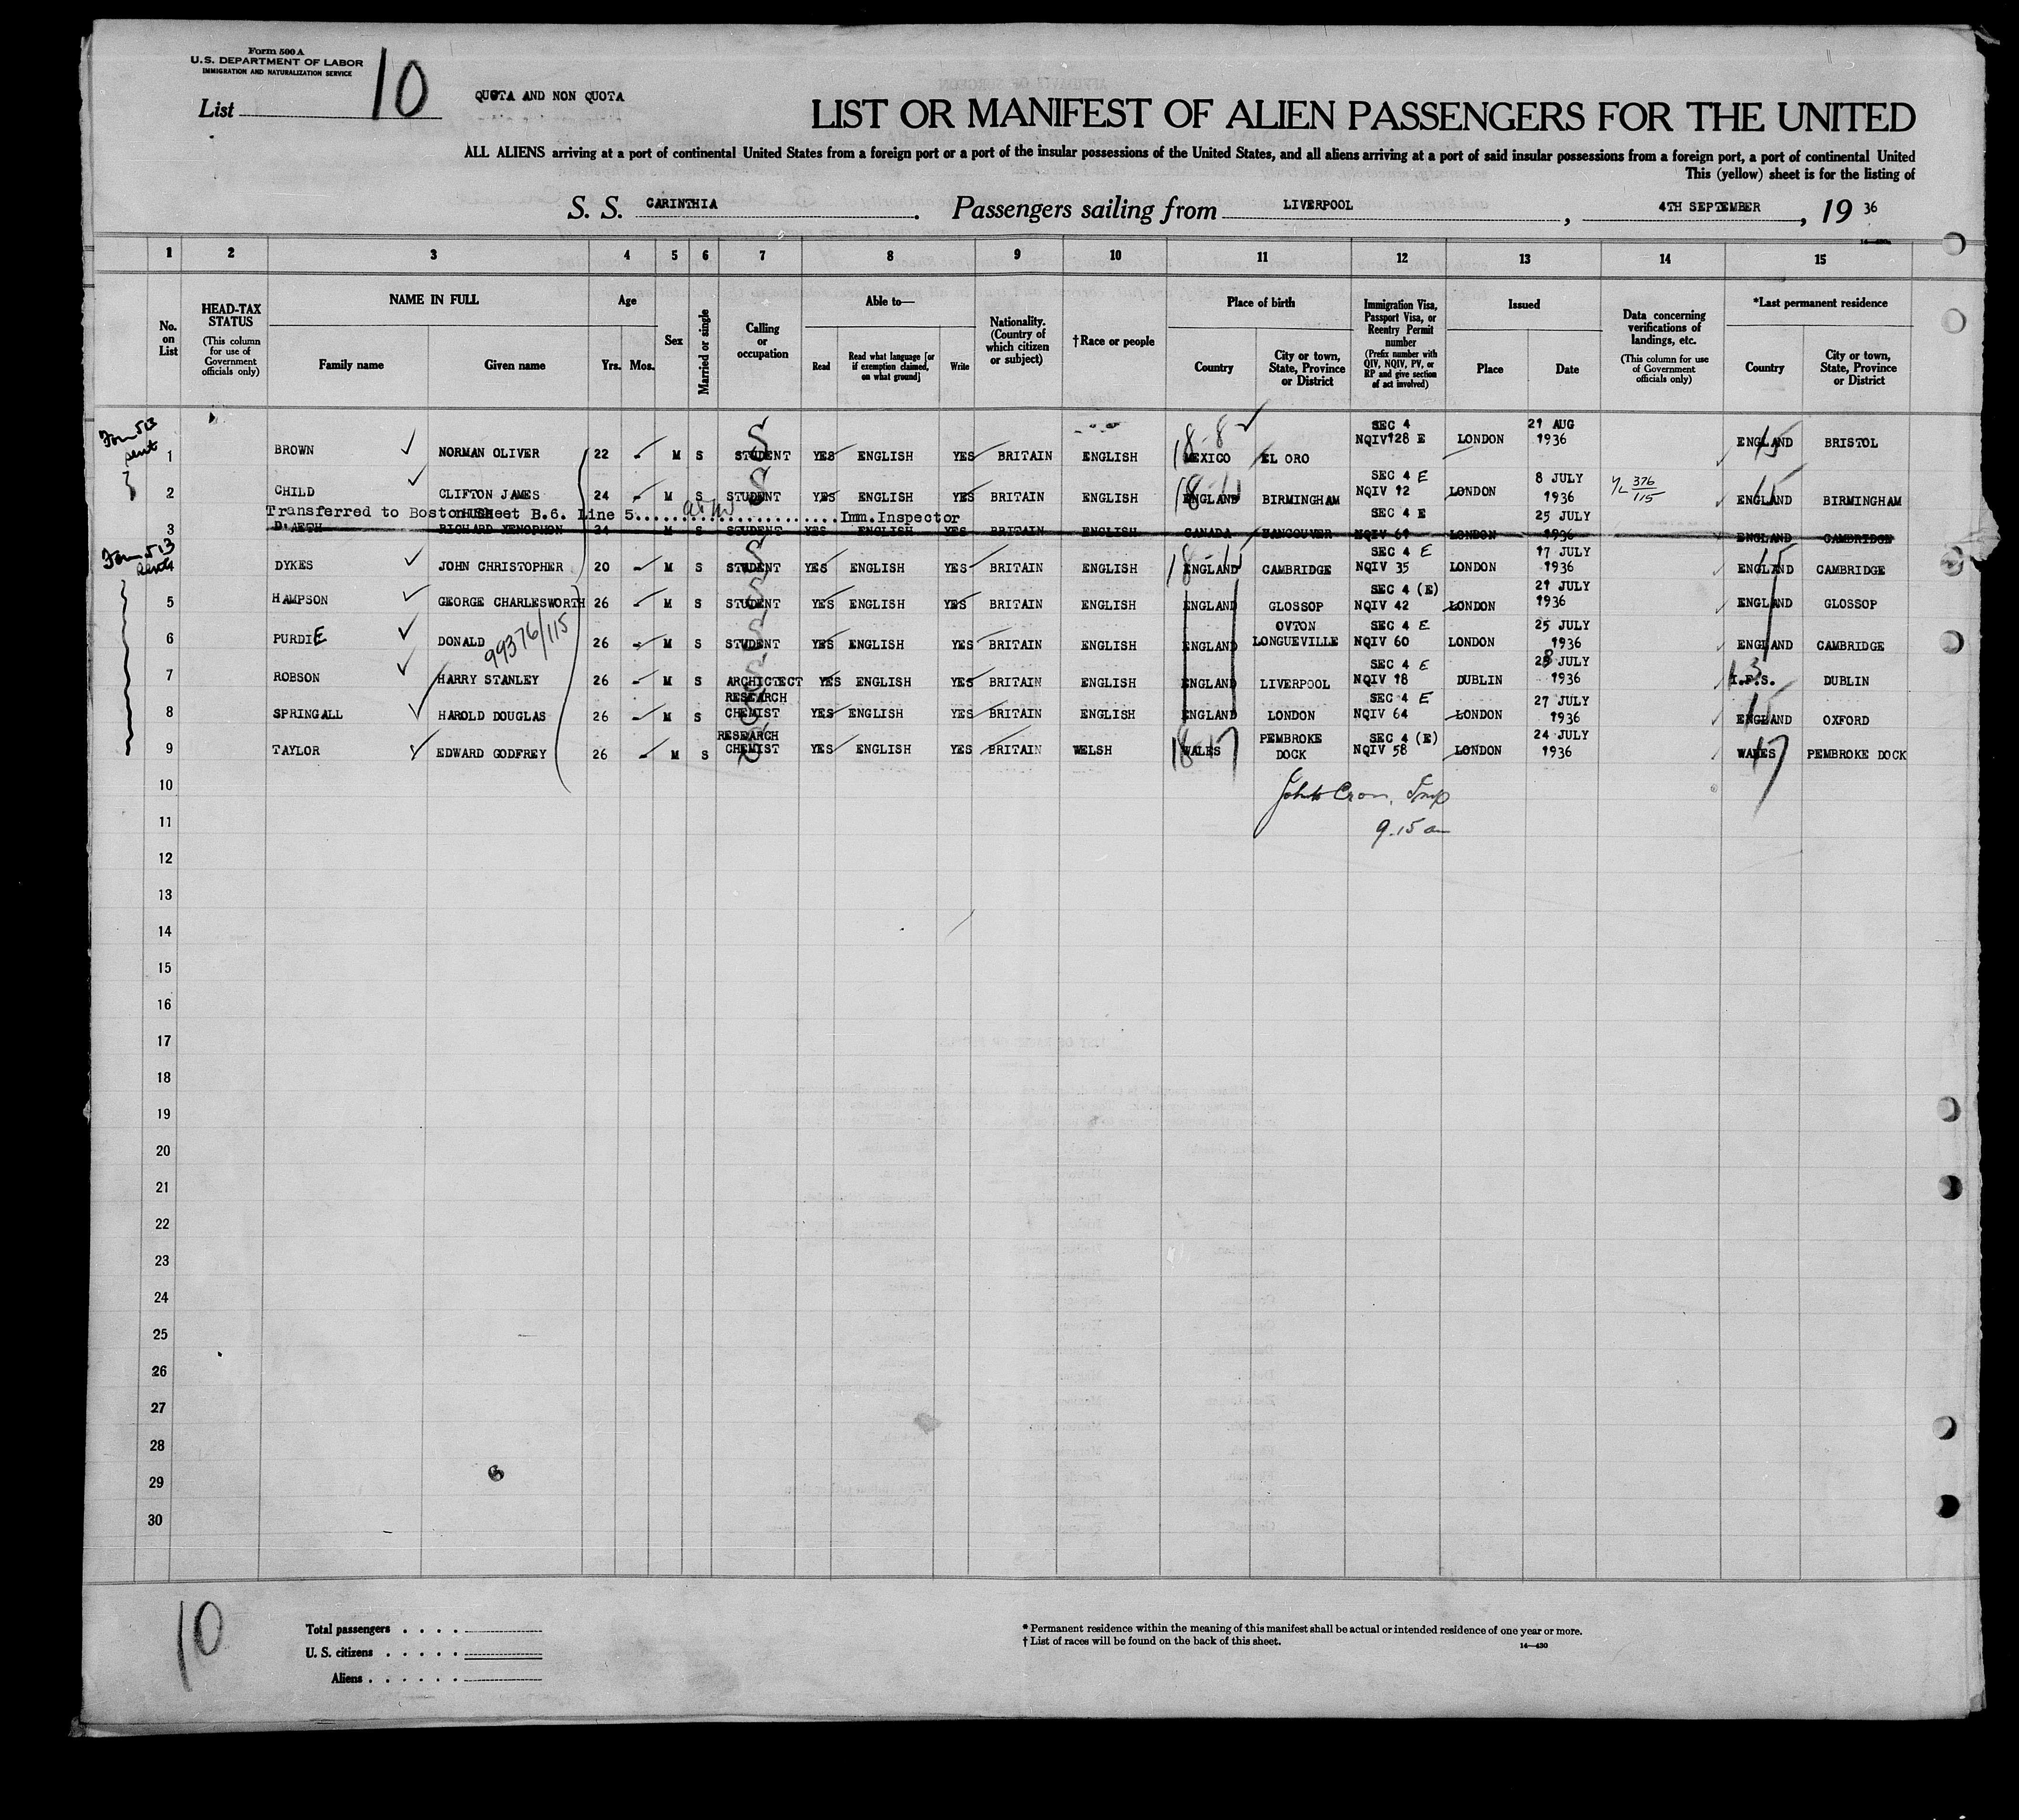 Form 500 A
U.S. DEPARTMENT OF LABOR
IMMIGRATION AND NATURALIZATION SERVICE
List 10
QUOTA AND NON QUOTA
LIST OR MANIFEST OF ALIEN PASSENGERS FOR THE UNITED
ALL ALIENS arriving at a port of continental United States from a foreign port or a port of the insular possessions of the United States, and all aliens arriving at a port of said insular possessions from a foreign port, a port of continental United
This (yellow) sheet is for the listing of
S. S. CARINTHIA. Passengers sailing from LIVERPOOL, 4TH SEPTEMBER, 19 36
1 2 3 4 5 6 7 8 9 10 11 12 13 14 15
No. on List
HEAD-TAX STATUS
(This column for use of Government officials only)
NAME IN FULL
Family name Given name
Age
Yrs. Mos.
Sex
Married or single
Calling or occupation
Able to—
Read
Read what language [or if exemption claimed, on what ground]
Write
Nationality. (Country of which citizen or subject)
†Race or people
Place of birth
Country
City or town, State, Province or District
Immigration Visa, Passport Visa, or Reentry Permit number
(Prefix number with QIV, NQIV, PV, or RP and give section of act involved)
Issued
Place Date
Data concerning verifications of landings, etc.
(This column for use of Government officials only)
*Last permanent residence
Country
City or town, State, Province or District
Form 513 sent
1 BROWN NORMAN OLIVER 22 M S STUDENT YES ENGLISH YES BRITAIN ENGLISH MEXICO EL ORO SEC 4 NQIV128 E LONDON 21 AUG 1936 ENGLAND BRISTOL
18-8
2 CHILD CLIFTON JAMES 24 M S STUDENT YES ENGLISH YES BRITAIN ENGLISH ENGLAND BIRMINGHAM SEC 4 E NQIV 12 LONDON 8 JULY 1936 376/115 ENGLAND BIRMINGHAM
Transferred to Boston Sheet B.6. Line 5. Imm.Inspector
3 D'AETH RICHARD XENOPHON 24 M S STUDENT YES ENGLISH YES BRITAIN ENGLISH CANADA VANCOUVER SEC 4 E NQIV 61 LONDON 25 JULY 1936 ENGLAND CAMBRIDGE
Form 513 sent
4 DYKES JOHN CHRISTOPHER 20 M S STUDENT YES ENGLISH YES BRITAIN ENGLISH ENGLAND CAMBRIDGE SEC 4 E NQIV 35 LONDON 17 JULY 1936 ENGLAND CAMBRIDGE
5 HAMPSON GEORGE CHARLESWORTH 26 M S STUDENT YES ENGLISH YES BRITAIN ENGLISH ENGLAND GLOSSOP SEC 4 (E) NQIV 42 LONDON 21 JULY 1936 ENGLAND GLOSSOP
6 PURDIE DONALD 26 M S STUDENT YES ENGLISH YES BRITAIN ENGLISH ENGLAND OVTON LONGUEVILLE SEC 4 E NQIV 60 LONDON 25 JULY 1936 ENGLAND CAMBRIDGE
99376/115
7 ROBSON HARRY STANLEY 26 M S ARCHICTECT YES ENGLISH YES BRITAIN ENGLISH ENGLAND LIVERPOOL SEC 4 E NQIV 18 DUBLIN 28 JULY 1936 I.F.S. DUBLIN
8 SPRINGALL HAROLD DOUGLAS 26 M S RESEARCH CHEMIST YES ENGLISH YES BRITAIN ENGLISH ENGLAND LONDON SEC 4 E NQIV 64 LONDON 27 JULY 1936 ENGLAND OXFORD
9 TAYLOR EDWARD GODFREY 26 M S RESEARCH CHEMIST YES ENGLISH YES BRITAIN WELSH WALES PEMBROKE DOCK SEC 4 (E) NQIV 58 LONDON 24 JULY 1936 WALES PEMBROKE DOCK
10
9.15 am
11
12
13
14
15
16
17
18
19
20
21
22
23
24
25
26
27
28
29
30
10
Total passengers
U. S. citizens
Aliens
* Permanent residence within the meaning of this manifest shall be actual or intended residence of one year or more.
† List of races will be found on the back of this sheet.
14—430